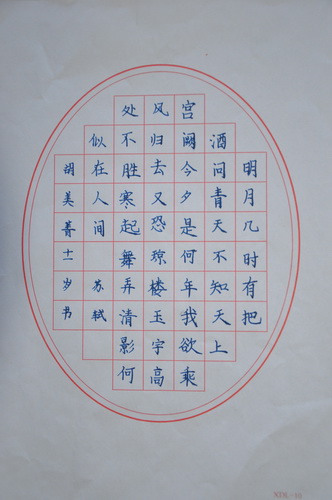 明月几时有把
酒问青天不知天上
宫阙今夕是何年我欲乘
风归去又恐琼楼玉宇高
处不胜寒起舞弄清影何
似在人间 苏轼
胡美菁十一岁书